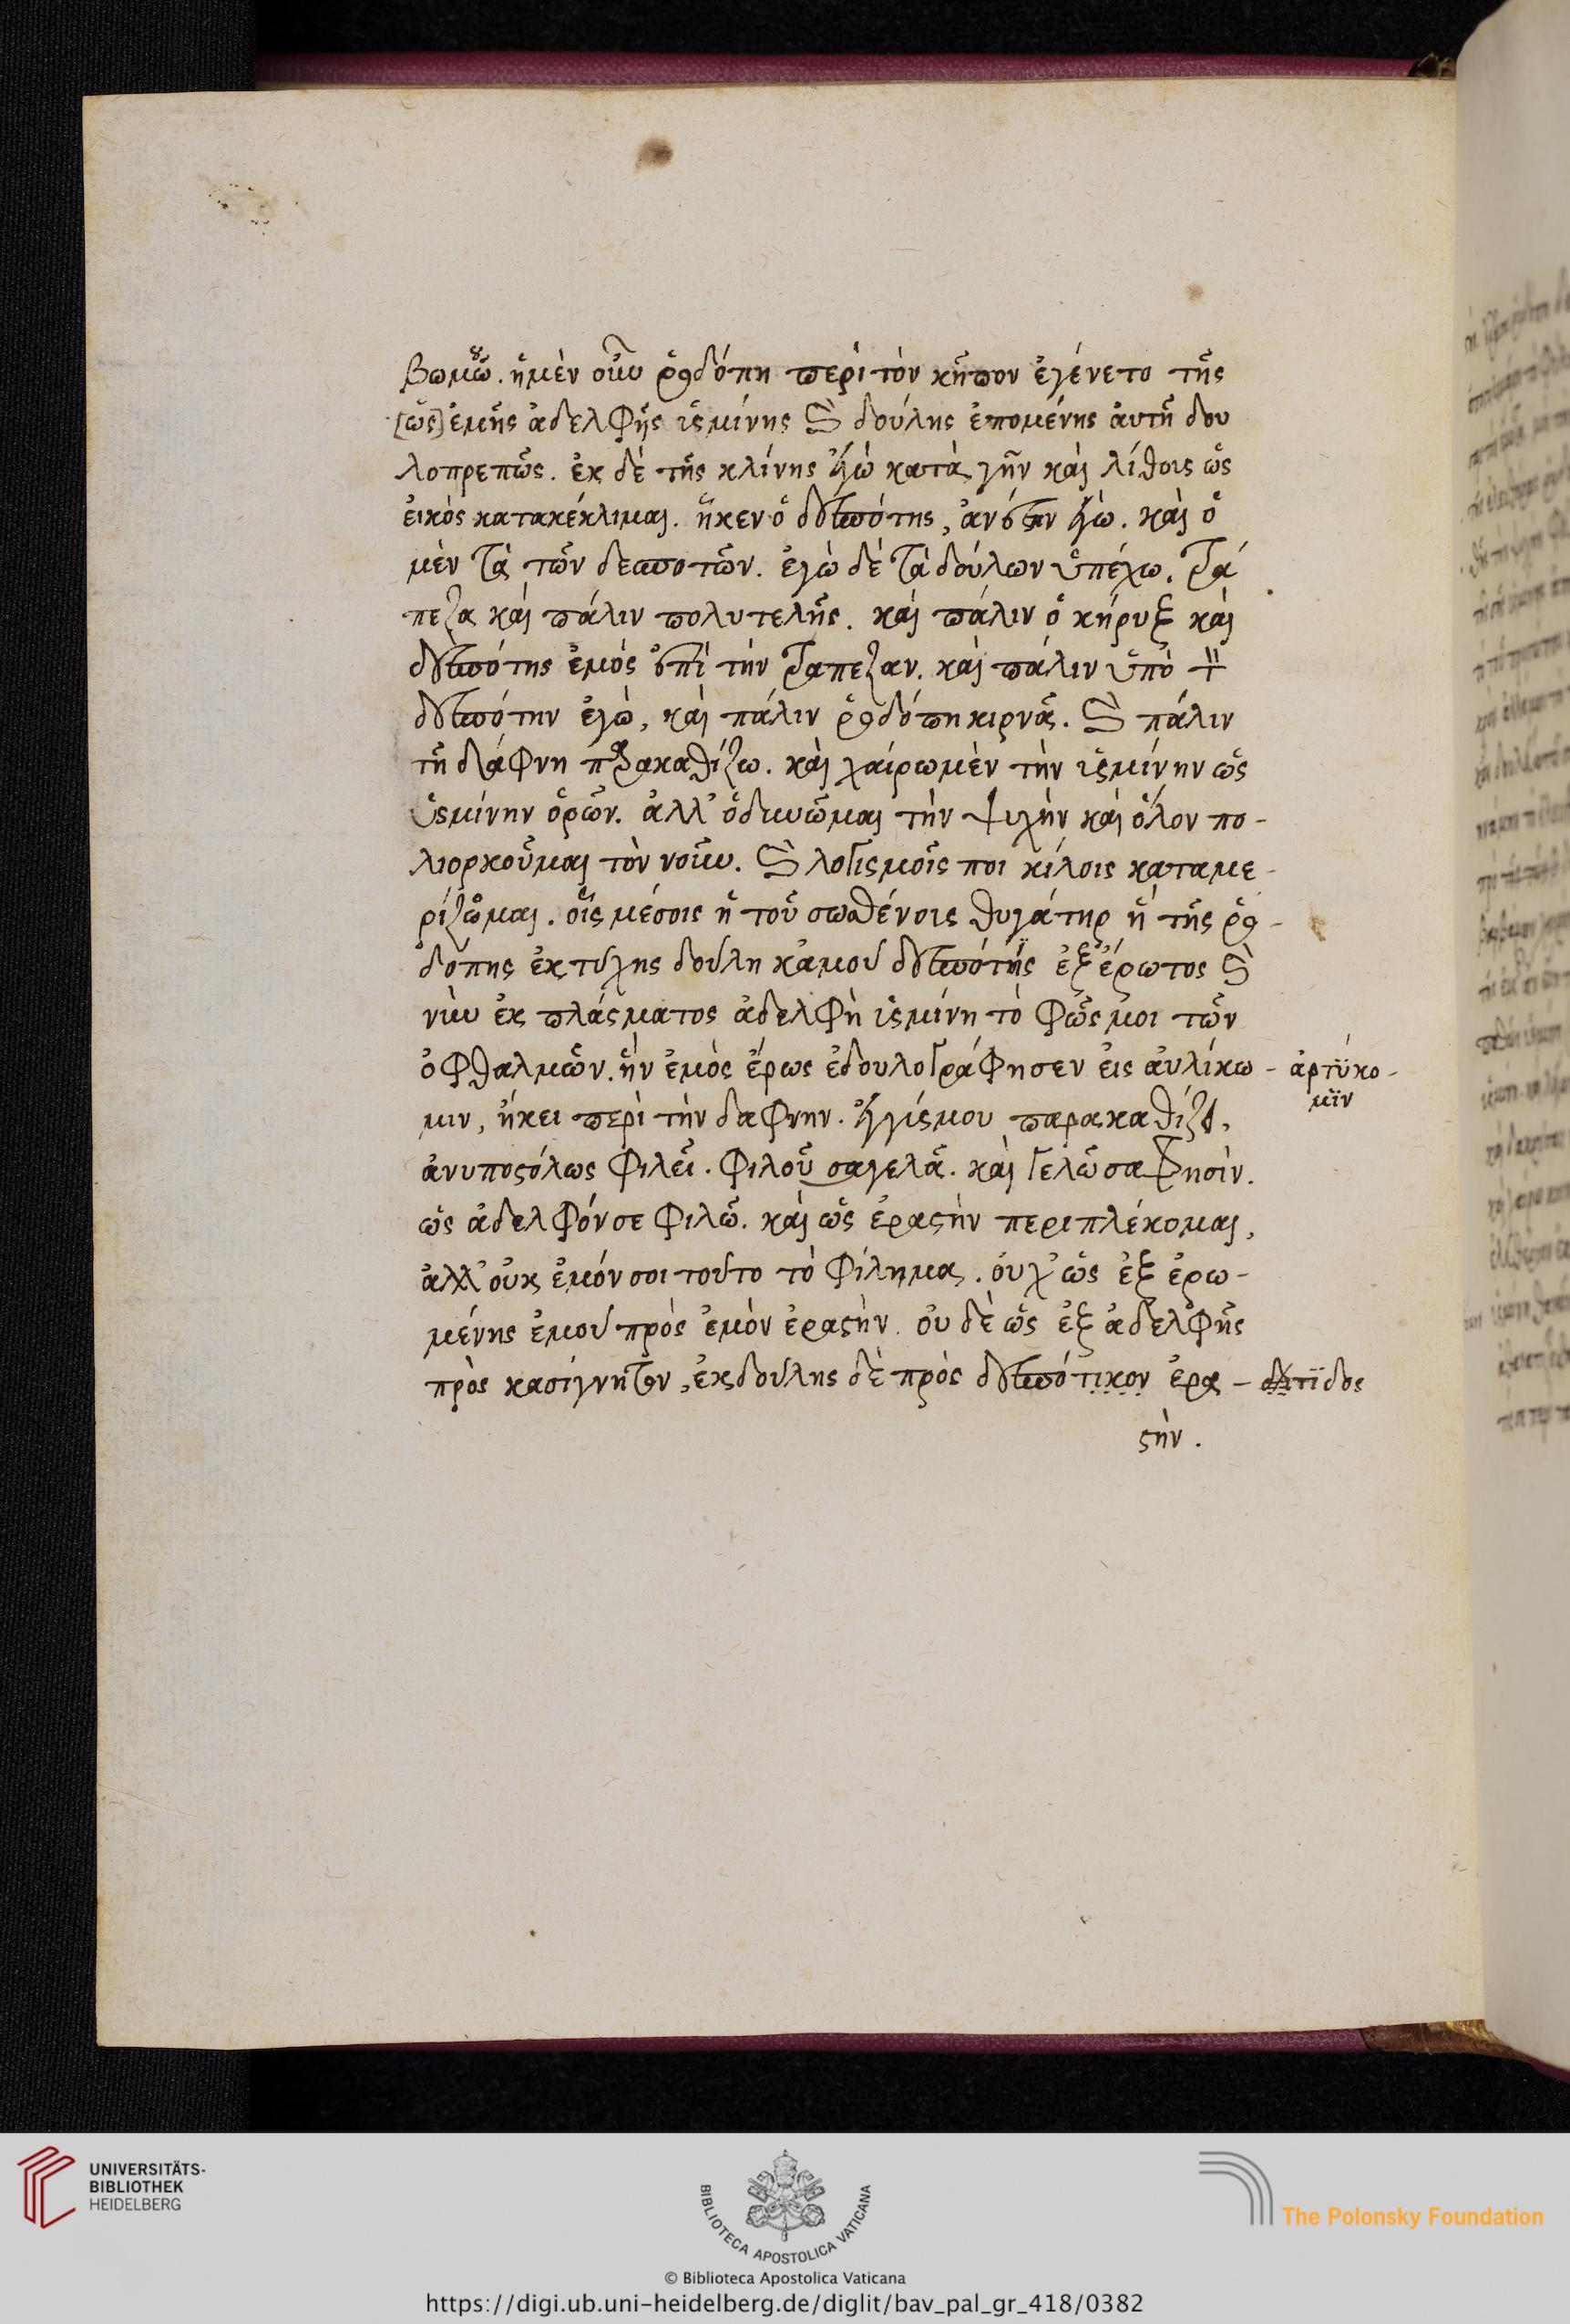 βωμοῦ. ἡ μὲν οὖν ῥοδόπη περὶ τὸν κῆπον ἐγένετο τῆς
[ὡς] ἐμῆς ἀδελφῆς ἰσμίνης καὶ δούλης ἑπομένης αὐτῆ δου
λοπρεπῶς. ἐκ δὲ τῆς κλίνης ἐγὼ κατὰ γῆν καὶ λίθοις ὡς
εἰκὸς κατακέκλιμαι. ἧκεν ὁ δεσπότης, ἀνέστην ἐγώ. καὶ ὁ
μὲν τὰ τῶν δεσποτῶν. ἐγὼ δὲ τὰ δούλων ὑπέχω. τρά
πεζα καὶ πάλιν πολυτελῆς. καὶ πάλιν ὁ κήρυξ καὶ
δεσπότης ἐμός ἐπὶ τὴν τράπεζαν. καὶ πάλιν ὑπὸ τὸν
δεσπότην ἐγὼ, καὶ πάλιν ῥοδόπη κιρνᾶ. καὶ πάλιν
τῆ δάφνη παρακαθίζω. καὶ χαίρω μὲν τὴν ἰσμίνην ὡς
ὑσμίνην ὁρῶν. ἀλλ' ὀδυνῶμαι τὴν ψυχὴν καὶ ὅλον πο-
λιορκοῦμαι τὸν νοῦν. καὶ λογισμοῖς ποικίλοις καταμε-
ρίζομαι. οἷς μέσοις ἡ τοῦ σωσθένους θυγάτηρ ἡ τῆς ῥο-
δόπης ἐκ τύχης δούλη κἀμοῦ δεσπότης ἐξ ἔρωτος καὶ
νῦν ἐκ πλάσματος ἀδελφὴ ἰσμίνη τὸ φῶς μοι τῶν
ὀφθαλμῶν. ἣν ἐμὸς ἔρως ἐδουλογράφησεν εἰς αὐλίκω - ἀρτύκο -
μιν, ἥκει περὶ τὴν δάφνην. ἐγγίς μου παρακαθίζει,
ἀνυποστόλως φιλεῖ. φιλοῦσα γελᾶ. καὶ γελῶσα φησὶν.
ὡς ἀδελφόν σε φιλῶ. καὶ ὡς ἐραστὴν περιπλέκομαι,
ἀλλ' οὐκ ἐμόν σοι τοῦτο τὸ φίλημα. οὐχ' ὡς ἐξ ἐρω-
μένης ἐμοῦ πρὸς ἐμὸν ἐραστὴν. οὐδὲ ὡς ἐξ ἀδελφῆς
πρὸς κασίγνητον, ἐκ δούλης δὲ πρὸς δεσπότικον ἐρα -
στὴν.
μϊν
UNIVERSITÄTS-
BIBLIOTHEK
HEIDELBERG
BIBLIOTECA APOSTOLICA VATICANA
© Biblioteca Apostolica Vaticana
The Polonsky Foundation
https://digi.ub.uni-heidelberg.de/diglit/bav_pal_gr_418/0382